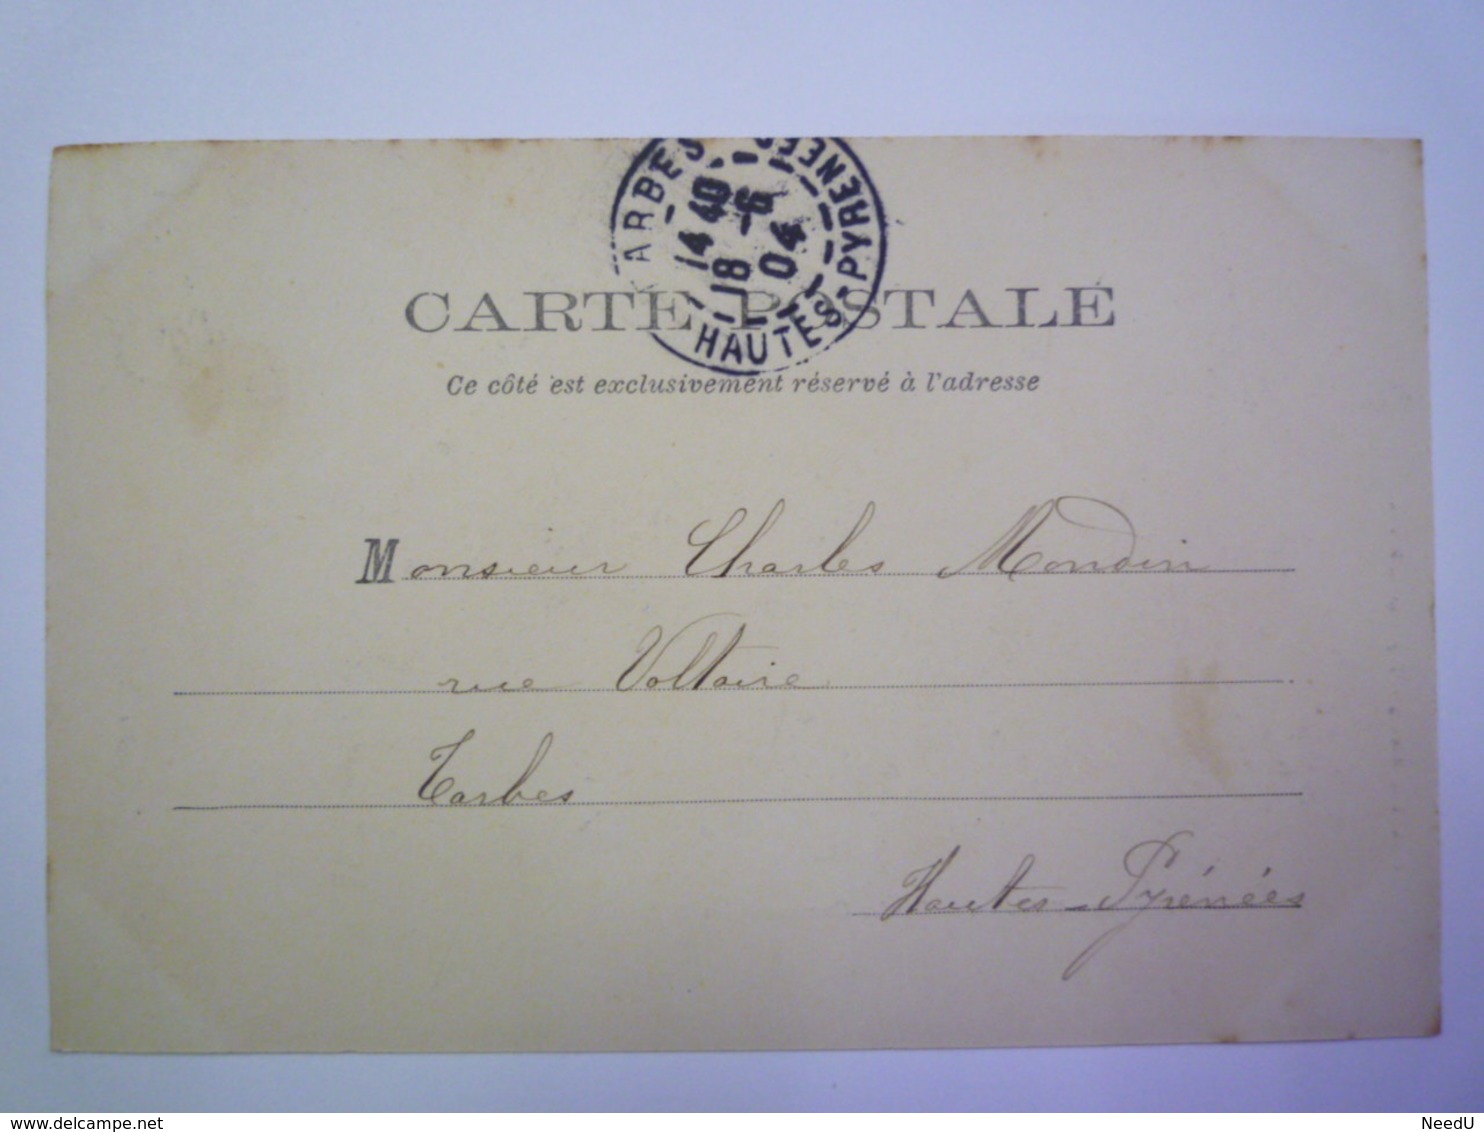 TARBES
14 40
18 -6
04
HAUTES-PYRENEES
CARTE POSTALE
Ce côté est exclusivement réservé à l'adresse
Monsieur Charles Mondin
rue Voltaire
Tarbes
Hautes-Pyrénées
www.delcampe.net
NeedU